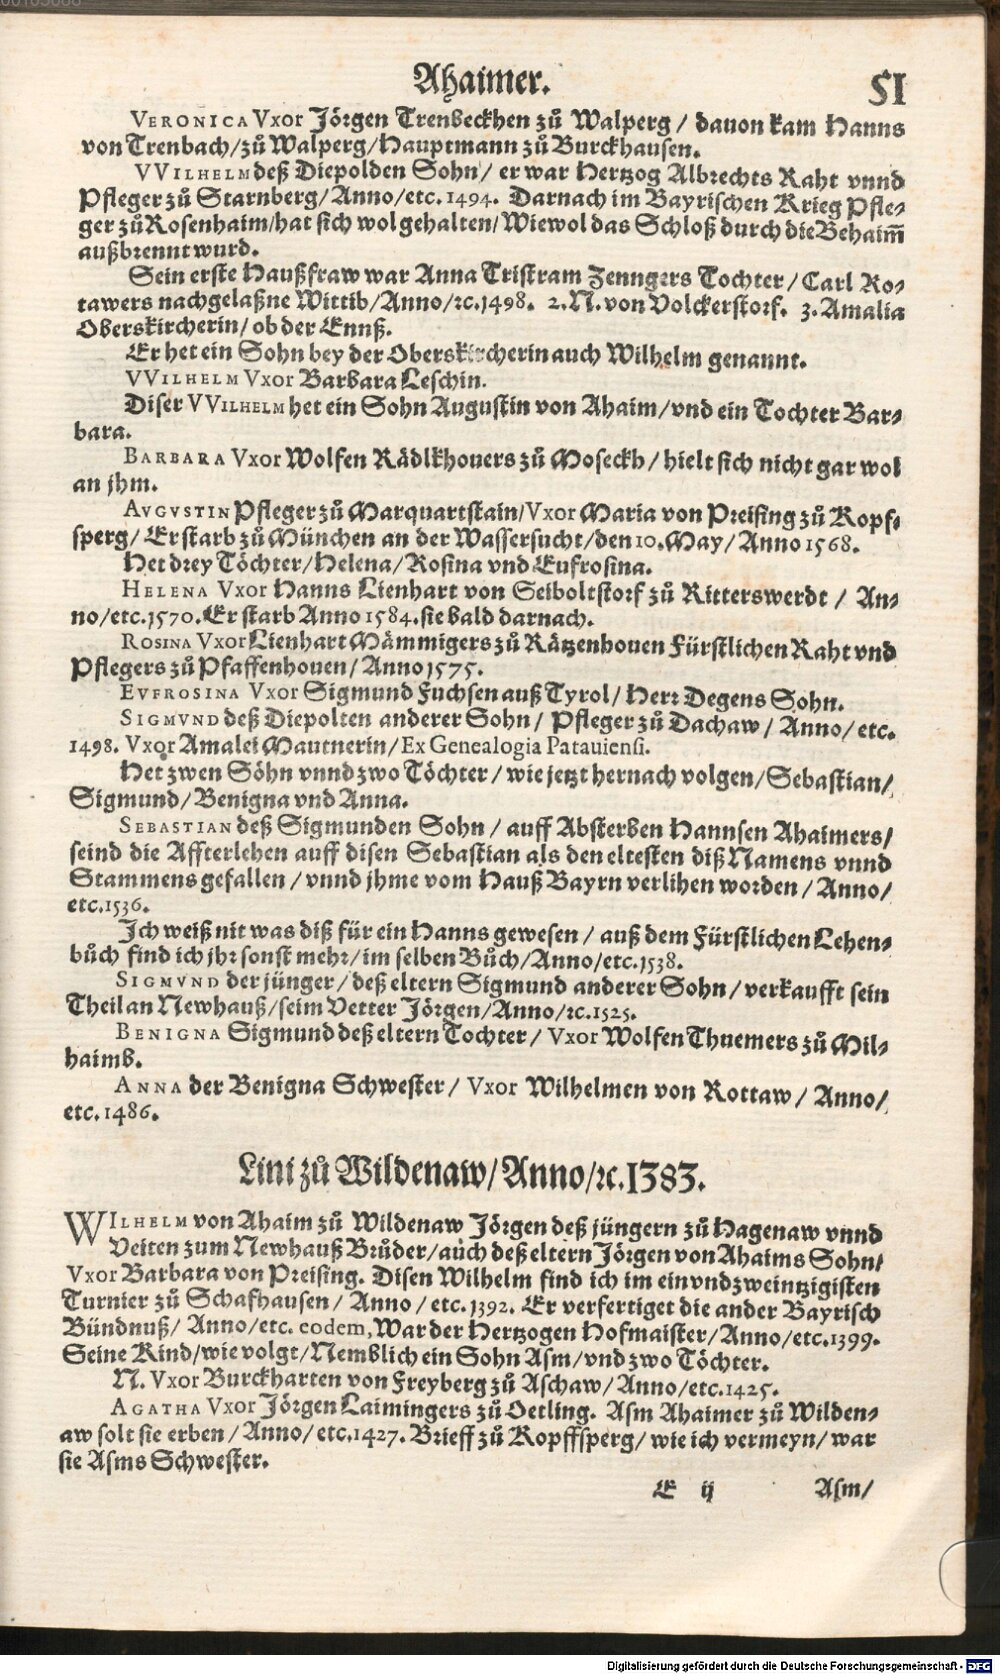 Ahaimer. 51
VERONICA Vxor Jörgen Trenbeckhen zů Walperg / dauon kam Hanns
von Trenbach/zů Walperg/Hauptmann zů Burckhausen.
VVILHELM deß Diepolden Sohn/ er war Hertzog Albrechts Raht vnnd
Pfleger zů Starnberg/Anno/etc. 1494. Darnach im Bayrischen Krieg Pfle-
ger zů Rosenhaim/hat sich wol gehalten/Wiewol das Schloß durch die Behaim̃
außbrennt wurd.
Sein erste Haußfraw war Anna Tristram Zenngers Tochter/Carl Ro-
tawers nachgelaßne Wittib/Anno/ꝛc.1498. 2.N.von Volckerstorf. 3.Amalia
Oberskircherin/ob der Ennß.
Er het ein Sohn bey der Oberskircherin auch Wilhelm genannt.
VVILHELM Vxor Barbara Leschin.
Diser VVILHELM het ein Sohn Augustin von Ahaim/vnd ein Tochter Bar-
bara.
BARBARA Vxor Wolfen Rädlkhouers zů Moseckh/hielt sich nicht gar wol
an jhm.
AVGVSTIN Pfleger zů Marquartstain/Vxor Maria von Preising zů Kopf-
sperg/Er starb zů München an der Wassersucht/den 10.May/Anno 1568.
Het drey Töchter/Helena/Rosina vnd Eufrosina.
HELENA Vxor Hanns Lienhart von Seiboltstorf zů Ritterswerdt / An-
no/etc.1570.Er starb Anno 1584.sie bald darnach.
ROSINA Vxor Lienhart Mämmigers zů Rätzenhouen Fürstlichen Raht vnd
Pflegers zů Pfaffenhouen/Anno 1575.
EVFROSINA Vxor Sigmund Fuchsen auß Tyrol/Herr Degens Sohn.
SIGMVND deß Diepolten anderer Sohn/ Pfleger zů Dachaw/ Anno/etc.
1498. Vxor Amalei Mautnerin/Ex Genealogia Patauiensi.
Het zwen Söhn vnnd zwo Töchter/wie jetzt hernach volgen/Sebastian/
Sigmund/Benigna vnd Anna.
SEBASTIAN deß Sigmunden Sohn / auff Absterben Hannsen Ahaimers/
seind die Affterlehen auff disen Sebastian als den eltesten diß Namens vnnd
Stammens gefallen/vnnd jhme vom Hauß Bayrn verlihen worden/Anno/
etc.1536.
Ich weiß nit was diß für ein Hanns gewesen / auß dem Fürstlichen Lehen-
bůch find ich jhr sonst mehr/im selben Bůch/Anno/etc.1538.
SIGMVND der jünger/deß eltern Sigmund anderer Sohn/verkaufft sein
Theil an Newhauß/seim Vetter Jörgen/Anno/ꝛc.1525.
BENIGNA Sigmund deß eltern Tochter/ Vxor Wolfen Thuemers zů Mil-
haimb.
ANNA der Benigna Schwester/ Vxor Wilhelmen von Rottaw/ Anno/
etc.1486.
Lini zů Wildenaw/Anno/ꝛc.1383.
WILHELM von Ahaim zů Wildenaw Jörgen deß jüngern zů Hagenaw vnnd
Veiten zum Newhauß Brůder/auch deß eltern Jörgen von Ahaims Sohn/
Vxor Barbara von Preising. Disen Wilhelm find ich im ein vnd zweintzigisten
Turnier zů Schafhausen/ Anno/etc.1392. Er verfertiget die ander Bayrisch
Bündnuß/ Anno/etc. eodem, War der Hertzogen Hofmaister/Anno/etc.1399.
Seine Kind/wie volgt/Nemblich ein Sohn Asm/vnd zwo Töchter.
N. Vxor Burckharten von Freyberg zů Aschaw/Anno/etc.1425.
AGATHA Vxor Jörgen Laimingers zů Oetling. Asm Ahaimer zů Wilden-
aw solt sie erben/Anno/etc.1427. Brieff zů Kopffsperg/wie ich vermeyn/war
sie Asms Schwester.
E ij Asm/
Digitalisierung gefördert durch die Deutsche Forschungsgemeinschaft - DFG